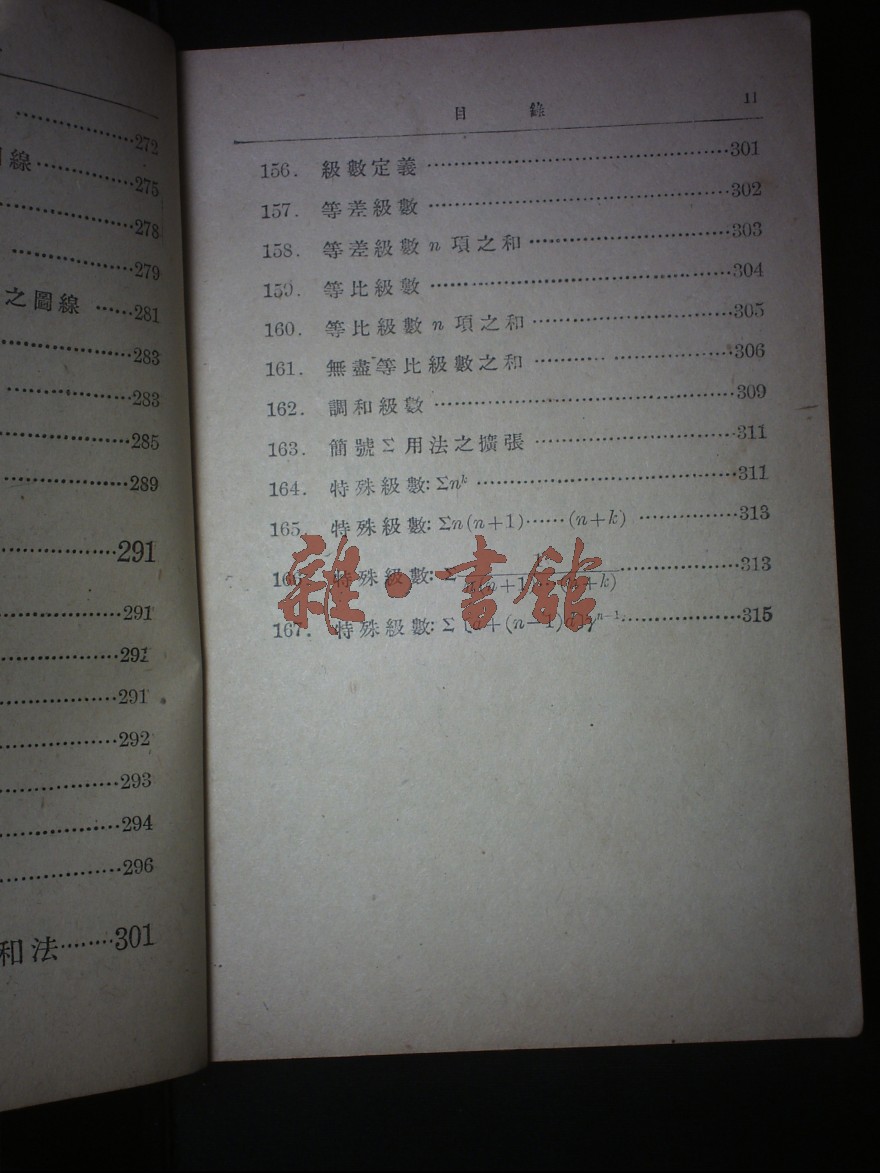 272
線……275
278
279
之圖線……281
283
283
285
289
291
291
291
291
292
293
294
296
和法……301
目 錄 11
156. 級數定義……301
157. 等差級數……302
158. 等差級數 n 項之和……303
159. 等比級數……304
160. 等比級數 n 項之和……305
161. 無盡等比級數之和……306
162. 調和級數……309
163. 簡號 Σ 用法之擴張……311
164. 特殊級數: Σnᵏ……311
165. 特殊級數: Σn(n+1)……(n+k)……313
166. 特殊級數: Σ……313
167. 特殊級數: Σ……315
雜·書館